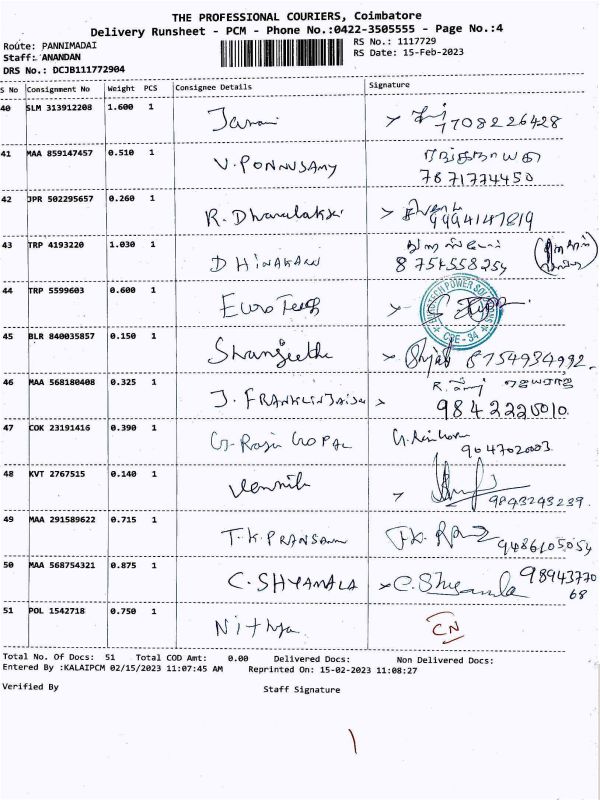 THE PROFESSIONAL COURIERS, Coimbatore
Delivery Runsheet - PCM - Phone No.:0422-3505555 - Page No.:4
Route: PANNIMADAI
RS No.: 1117729
Staff: ANANDAN
RS Date: 15-Feb-2023
DRS No.: DCJB111772904
S No Consignment No Weight PCS Consignee Details Signature
40 SLM 313912208 1.600 1 Janani 7708226428
41 MAA 859147457 0.510 1 V. PONNUSAMY
7871774450
42 JPR 502295657 0.260 1 R. Dhanalakxi 9994147819
43 TRP 4193220 1.030 1 DHINAKARN
8754558254
44 TRP 5599603 0.600 1 Euro Tech CBE-34
45 BLR 840035857 0.150 1 Shanjeethe 8754984992.
46 MAA 568180408 0.325 1 J. FRANKLIN
9842225010.
47 COK 23191416 0.390 1 G. Raju GOPAL
9047020003
48 KVT 2767515 0.140 1 Vennila 9843243239.
49 MAA 291589622 0.715 1 T.K. PRANSANN 9486105054
50 MAA 568754321 0.875 1 C. SHYAMALA C. Shyamala 9894377068
51 POL 1542718 0.750 1 Nithya CN
Total No. Of Docs: 51 Total COD Amt: 0.00 Delivered Docs: Non Delivered Docs:
Entered By :KALAIPCM 02/15/2023 11:07:45 AM Reprinted On: 15-02-2023 11:08:27
Verified By Staff Signature